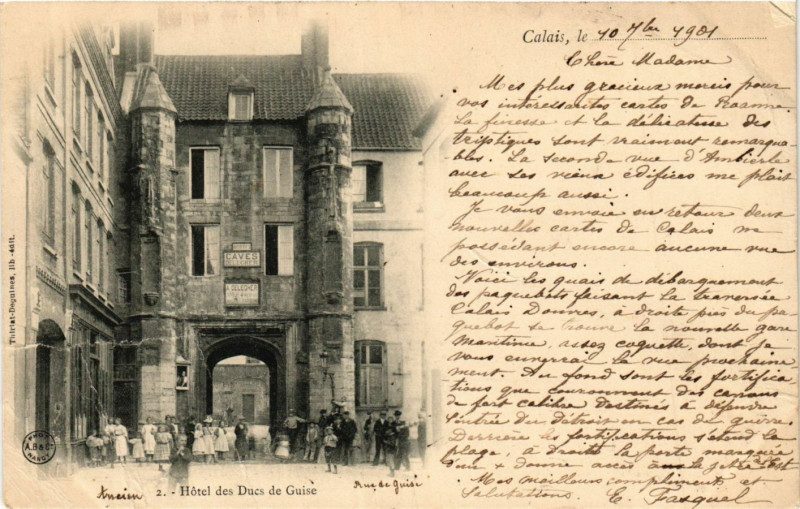 Calais, le 10 7bre 1901
Chère Madame
Mes plus gracieux mercis pour
vos intéressantes cartes de Roanne
La finesse et la délicatesse des
triptiques sont vraiment remarqua-
bles. La seconde vue d'Ambierle
avec ses vieux édifices me plait
beaucoup aussi.
Je vous envoie en retour deux
nouvelles cartes de Calais ne
possédant encore aucune vue
des environs.
Voici les quais de débarquement
des paquebots faisant la traversée
Calais Douvres, à droite près du pa-
quebot se trouve la nouvelle gare
maritime, assez coquette, dont je
vous enverrai la vue prochaine-
ment. Au fond sont les fortifica-
tions que couronnent des canons
de fort calibre destinés à défendre
l'entrée du détroit en cas de guerre.
Derrière les fortifications s'étend la
plage, à droite la porte marquée
d'un x donne accès à la jetée Est.
Mes meilleurs compliments et
Salutations. E. Fasquel
CAVES
DELEGHER
A. DELEGHER
Thiriat-Deguines, lib.-édit.
PHOT.
A.B.& Cie
NANCY
Ancien 2. - Hôtel des Ducs de Guise Rue de Guise